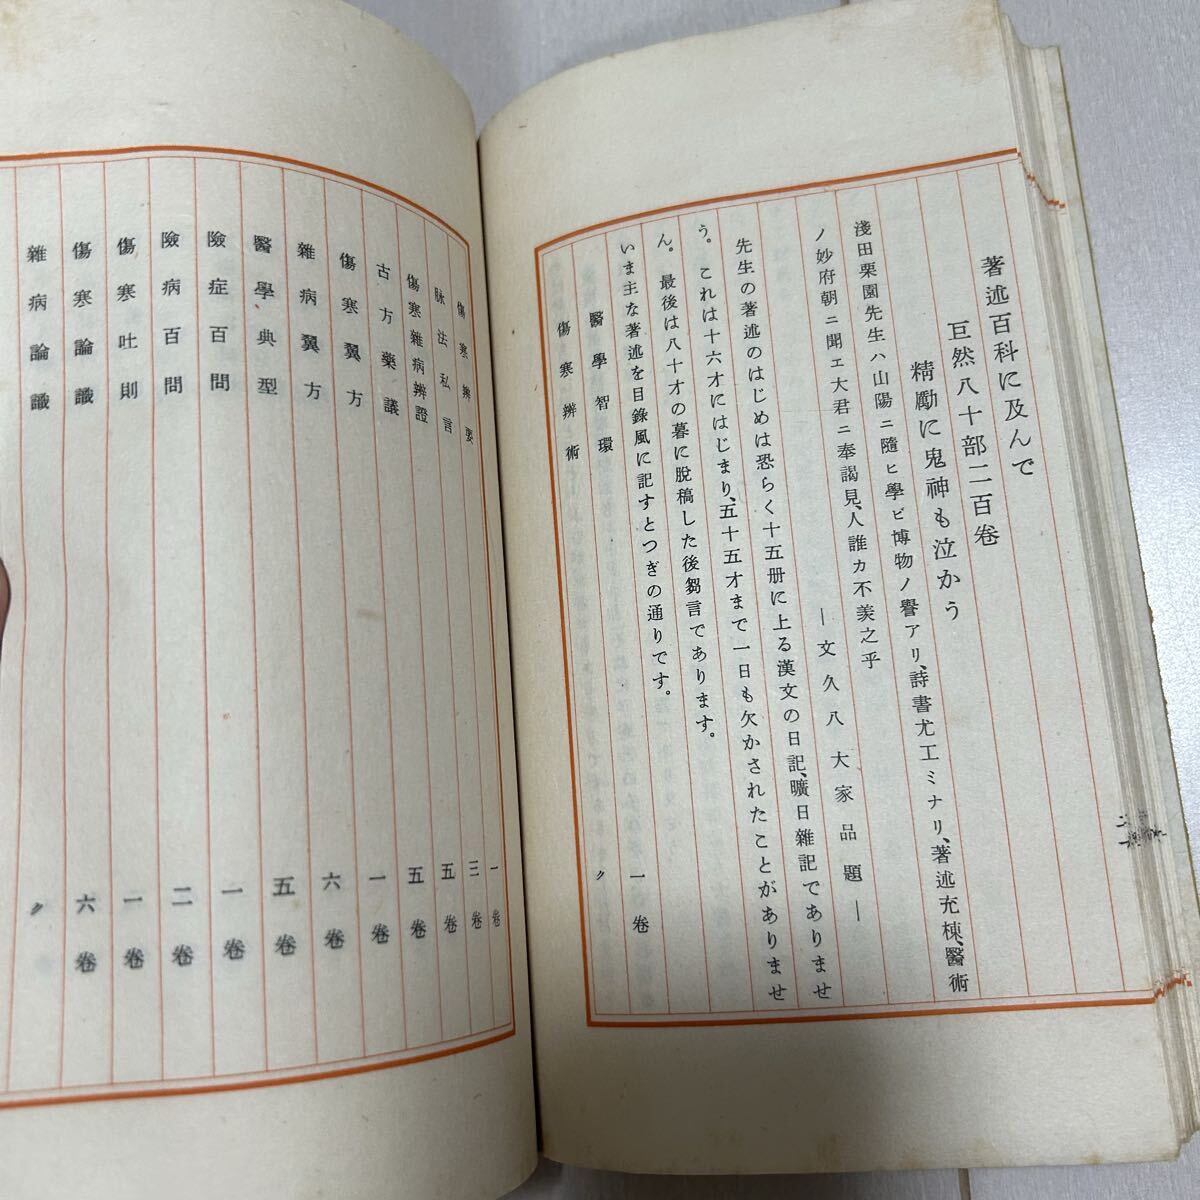 著述百科に及んで
巨然八十部二百卷
精勵に鬼神も泣かう
淺田栗園先生ハ山陽ニ隨ヒ學ビ博物ノ譽アリ、詩書尤工ミナリ、著述充棟、醫術
ノ妙府朝ニ聞エ大君ニ奉謁見、人誰カ不羨之乎
―文久八大家品題―
先生の著述のはじめは恐らく十五册に上る漢文の日記、曠日雜記でありませ
う。これは十六才にはじまり、五十五才まで一日も欠かされたことがありませ
ん。最後は八十才の暮に脫稿した後芻言であります。
いま主な著述を目錄風に記すとつぎの通りです。
醫學智環 一卷
傷寒辨術 〃
傷寒辨要 一卷
脉法私言 三卷
傷寒雜病辨證 五卷
古方藥議 五卷
傷寒翼方 一卷
雜病翼方 六卷
醫學典型 五卷
險症百問 一卷
險病百問 二卷
傷寒吐則 一卷
傷寒論識 六卷
雜病論識 〃